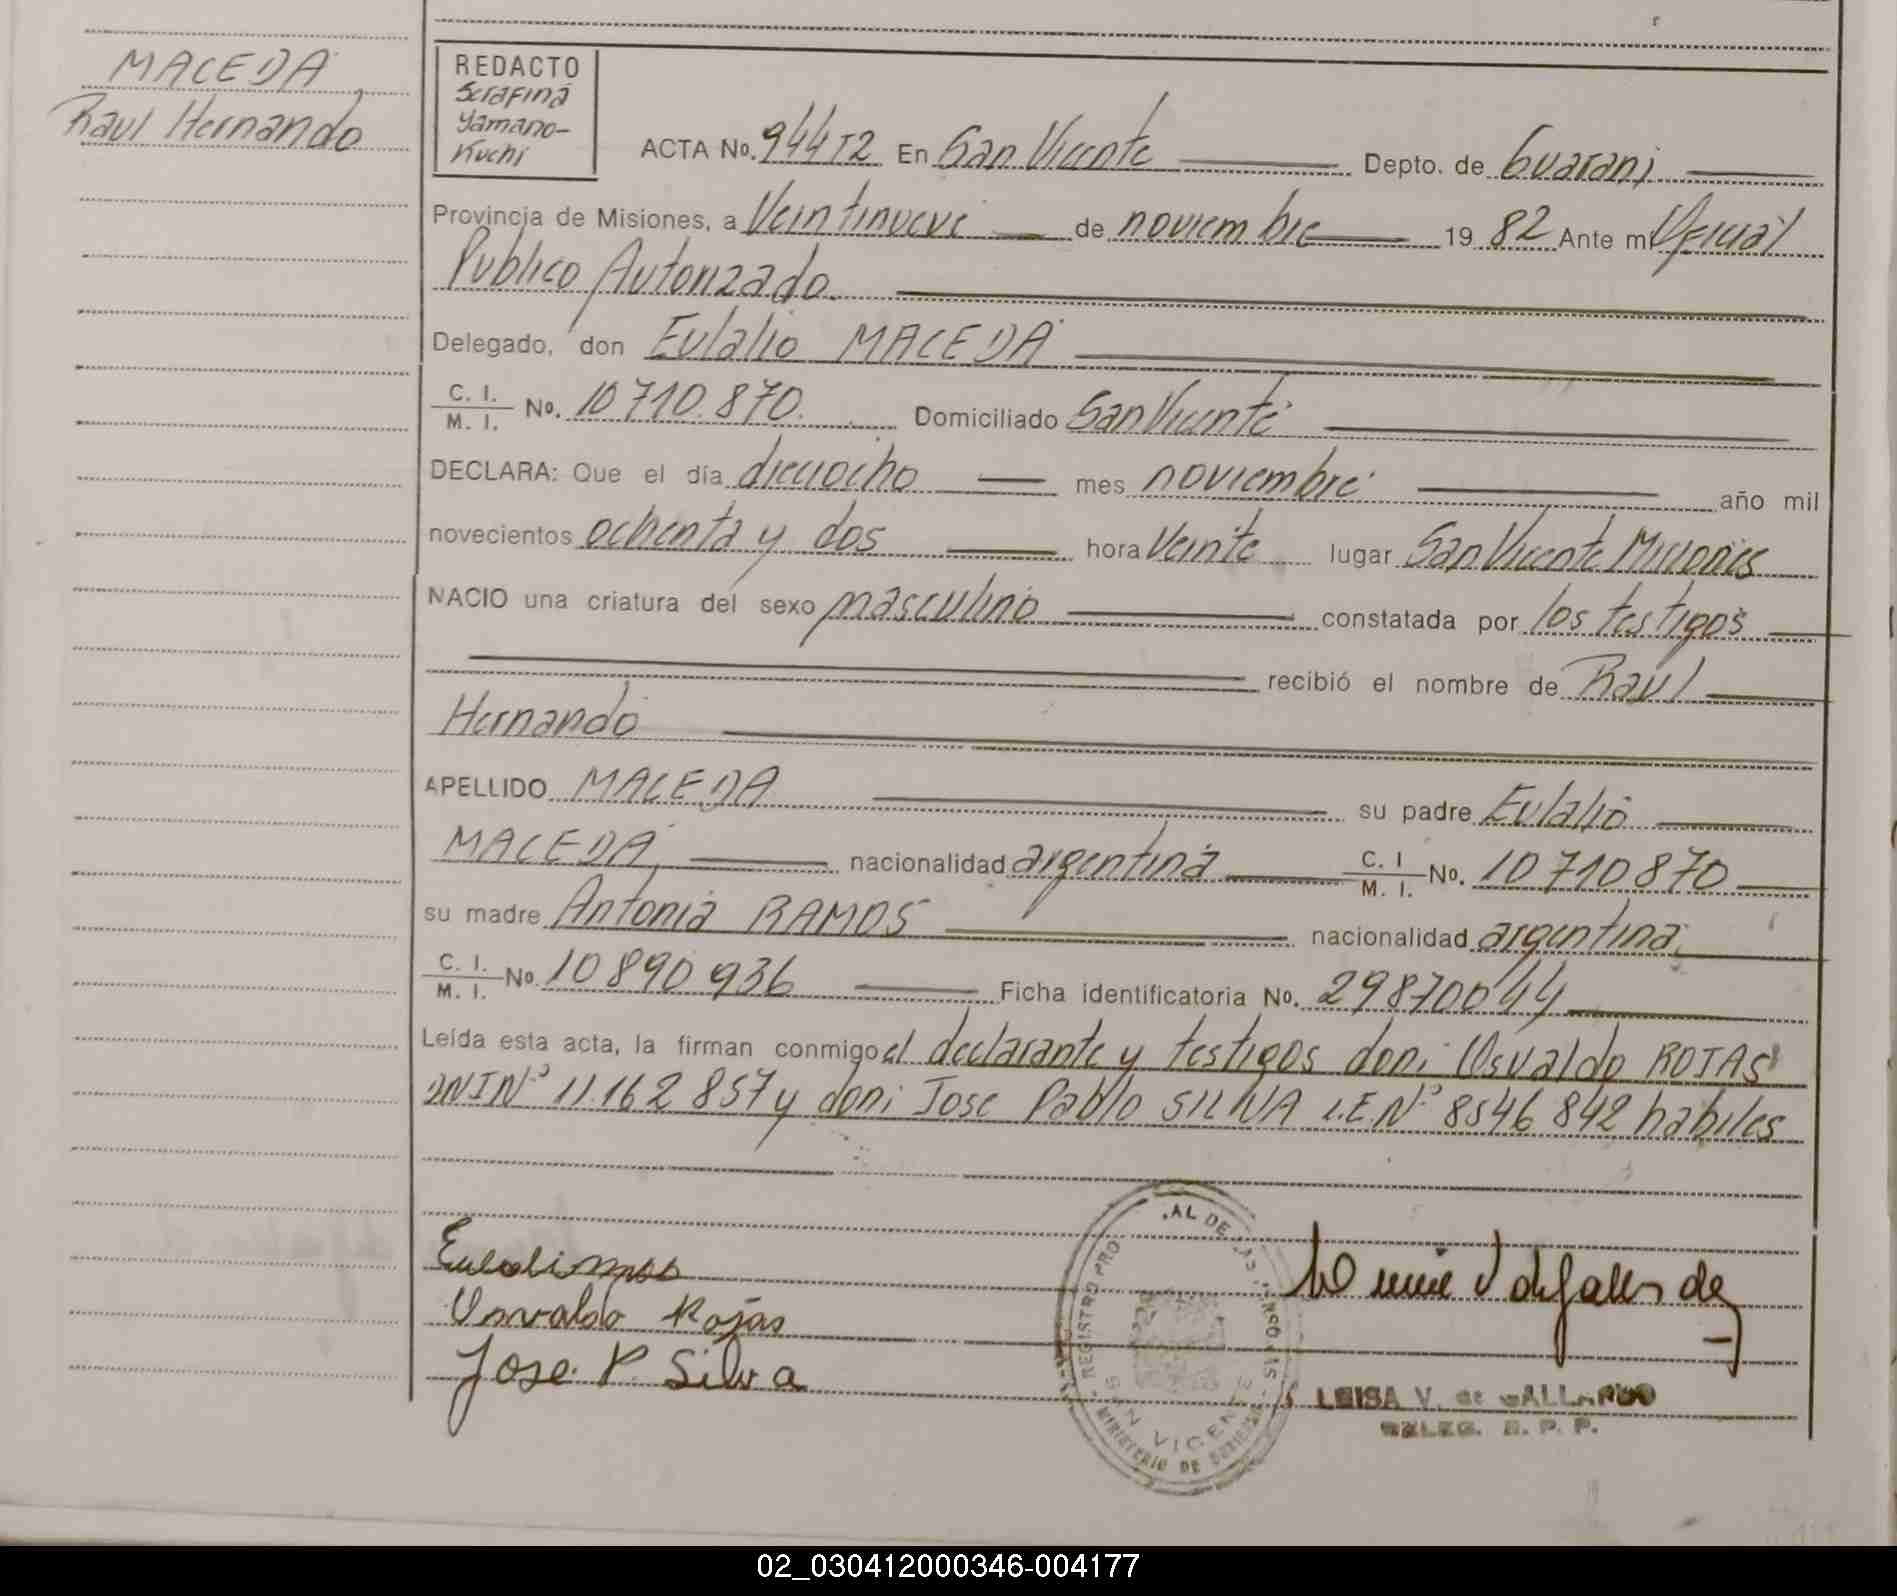 MACEDA
Raul Hernando
REDACTO
Serafina
Yamano-
Kuchi
ACTA No. 944T2 En San Vicente Depto. de Guarani
Provincia de Misiones, a Veintinueve de noviembre 19 82 Ante mi Oficial
Publico Autorizado
Delegado, don Eulalio MACEDA
C. I.
M. I. No. 10710.870. Domiciliado San Vicente
DECLARA: Que el día dieciocho mes noviembre año mil
novecientos ochenta y dos hora Veinte lugar San Vicente Misiones
NACIO una criatura del sexo masculino constatada por los testigos
recibió el nombre de Raul
Hernando
APELLIDO MACEDA su padre Eulalio
MACEDA nacionalidad argentina C. I M. I. No. 10710870
su madre Antonia RAMOS nacionalidad argentina
C. I.
M. I. No. 10890936 Ficha identificatoria No. 29870044
Leída esta acta, la firman conmigo el declarante y testigos don: Osvaldo ROJAS
DNI Nº 11.162.857 y don: Jose Pablo SILVA L.E. Nº 8546842 habiles
Osvaldo Rojas
Jose P. Silva
REGISTRO PRO AL DE LAS
SAN VICENTE
MINISTERIO DE GOBIERNO
LUISA V. de GALLARDO
DELEG. R. P. P.
02_030412000346-004177